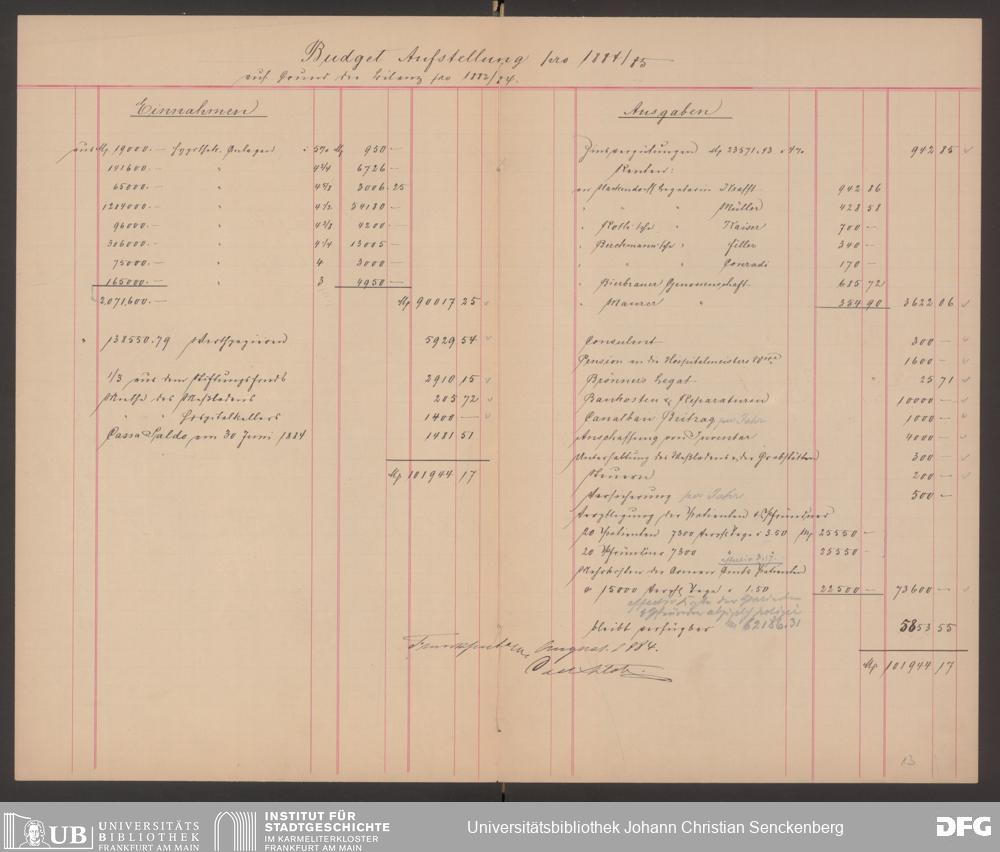 Budget Aufstellung pro 1884/85
auf Grund der Bilanz pro 1883/84.
Einnahmen
aus Mk 19000.— Hypothek. Anlagen à 5% Mk 950 —
141600.— " 4¾ 6726 —
65000.— " 3006.25
1204000.— " 4½ 54180 —
96000.— " 4200 —
306000.— " 4¼ 13005 —
75000.— " 4 3000 —
165000.— " 3 4950 —
2,071,600.— Mk 90017 25
" 138550.79 Werthpapieren 5929 54
1/3 aus dem Stiftungsfonds 2910 15
Miethe des Meßladens 205 72
" " Hospitalkellers 1400 —
Cassa Saldo am 30 Juni 1884 1481 51
Mk 101944 17
Ausgaben
Zinsvergütungen Mk 23571.43 à 4% 942 85
Renten:
Krafft 942 86
" " " Müller 428 58
" Roth'sche " Kaiser 700 —
" Berckmann'sche " Feller 340 —
" " " Conradi 170 —
" Bierbrauer Genossenschaft 685 72
" Maurer " 354 90 3622 06
Consulent 300 —
Pension an die Hospitalmeisters 1600 —
Brönners Legat 25 71
Baukosten & Reparaturen 10000 —
Canalbau Beitrag per Jahr 1000 —
Anschaffung von Inventar 4000 —
Unterhaltung des Meßladens u. der Grabstätten 300 —
Steuern 200 —
Versicherung per Jahr 500 —
Verpflegung der Patienten & Pfründner
20 Patienten 7300 Verpfl. Tage à 3.50 Mk 25550 —
20 Pfründner 7300 25550 —
Mehrkosten der Armen Amts Patienten
à 15000 Verpfl. Tage à 1.50 22500 — 73600 —
Mk 62186.31
bleibt verfügbar 5853 55
Mk 101944 17
Frankfurt a/M. August 1884.
13
UB
UNIVERSITÄTS
BIBLIOTHEK
FRANKFURT AM MAIN
INSTITUT FÜR
STADTGESCHICHTE
IM KARMELITERKLOSTER
FRANKFURT AM MAIN
Universitätsbibliothek Johann Christian Senckenberg
DFG